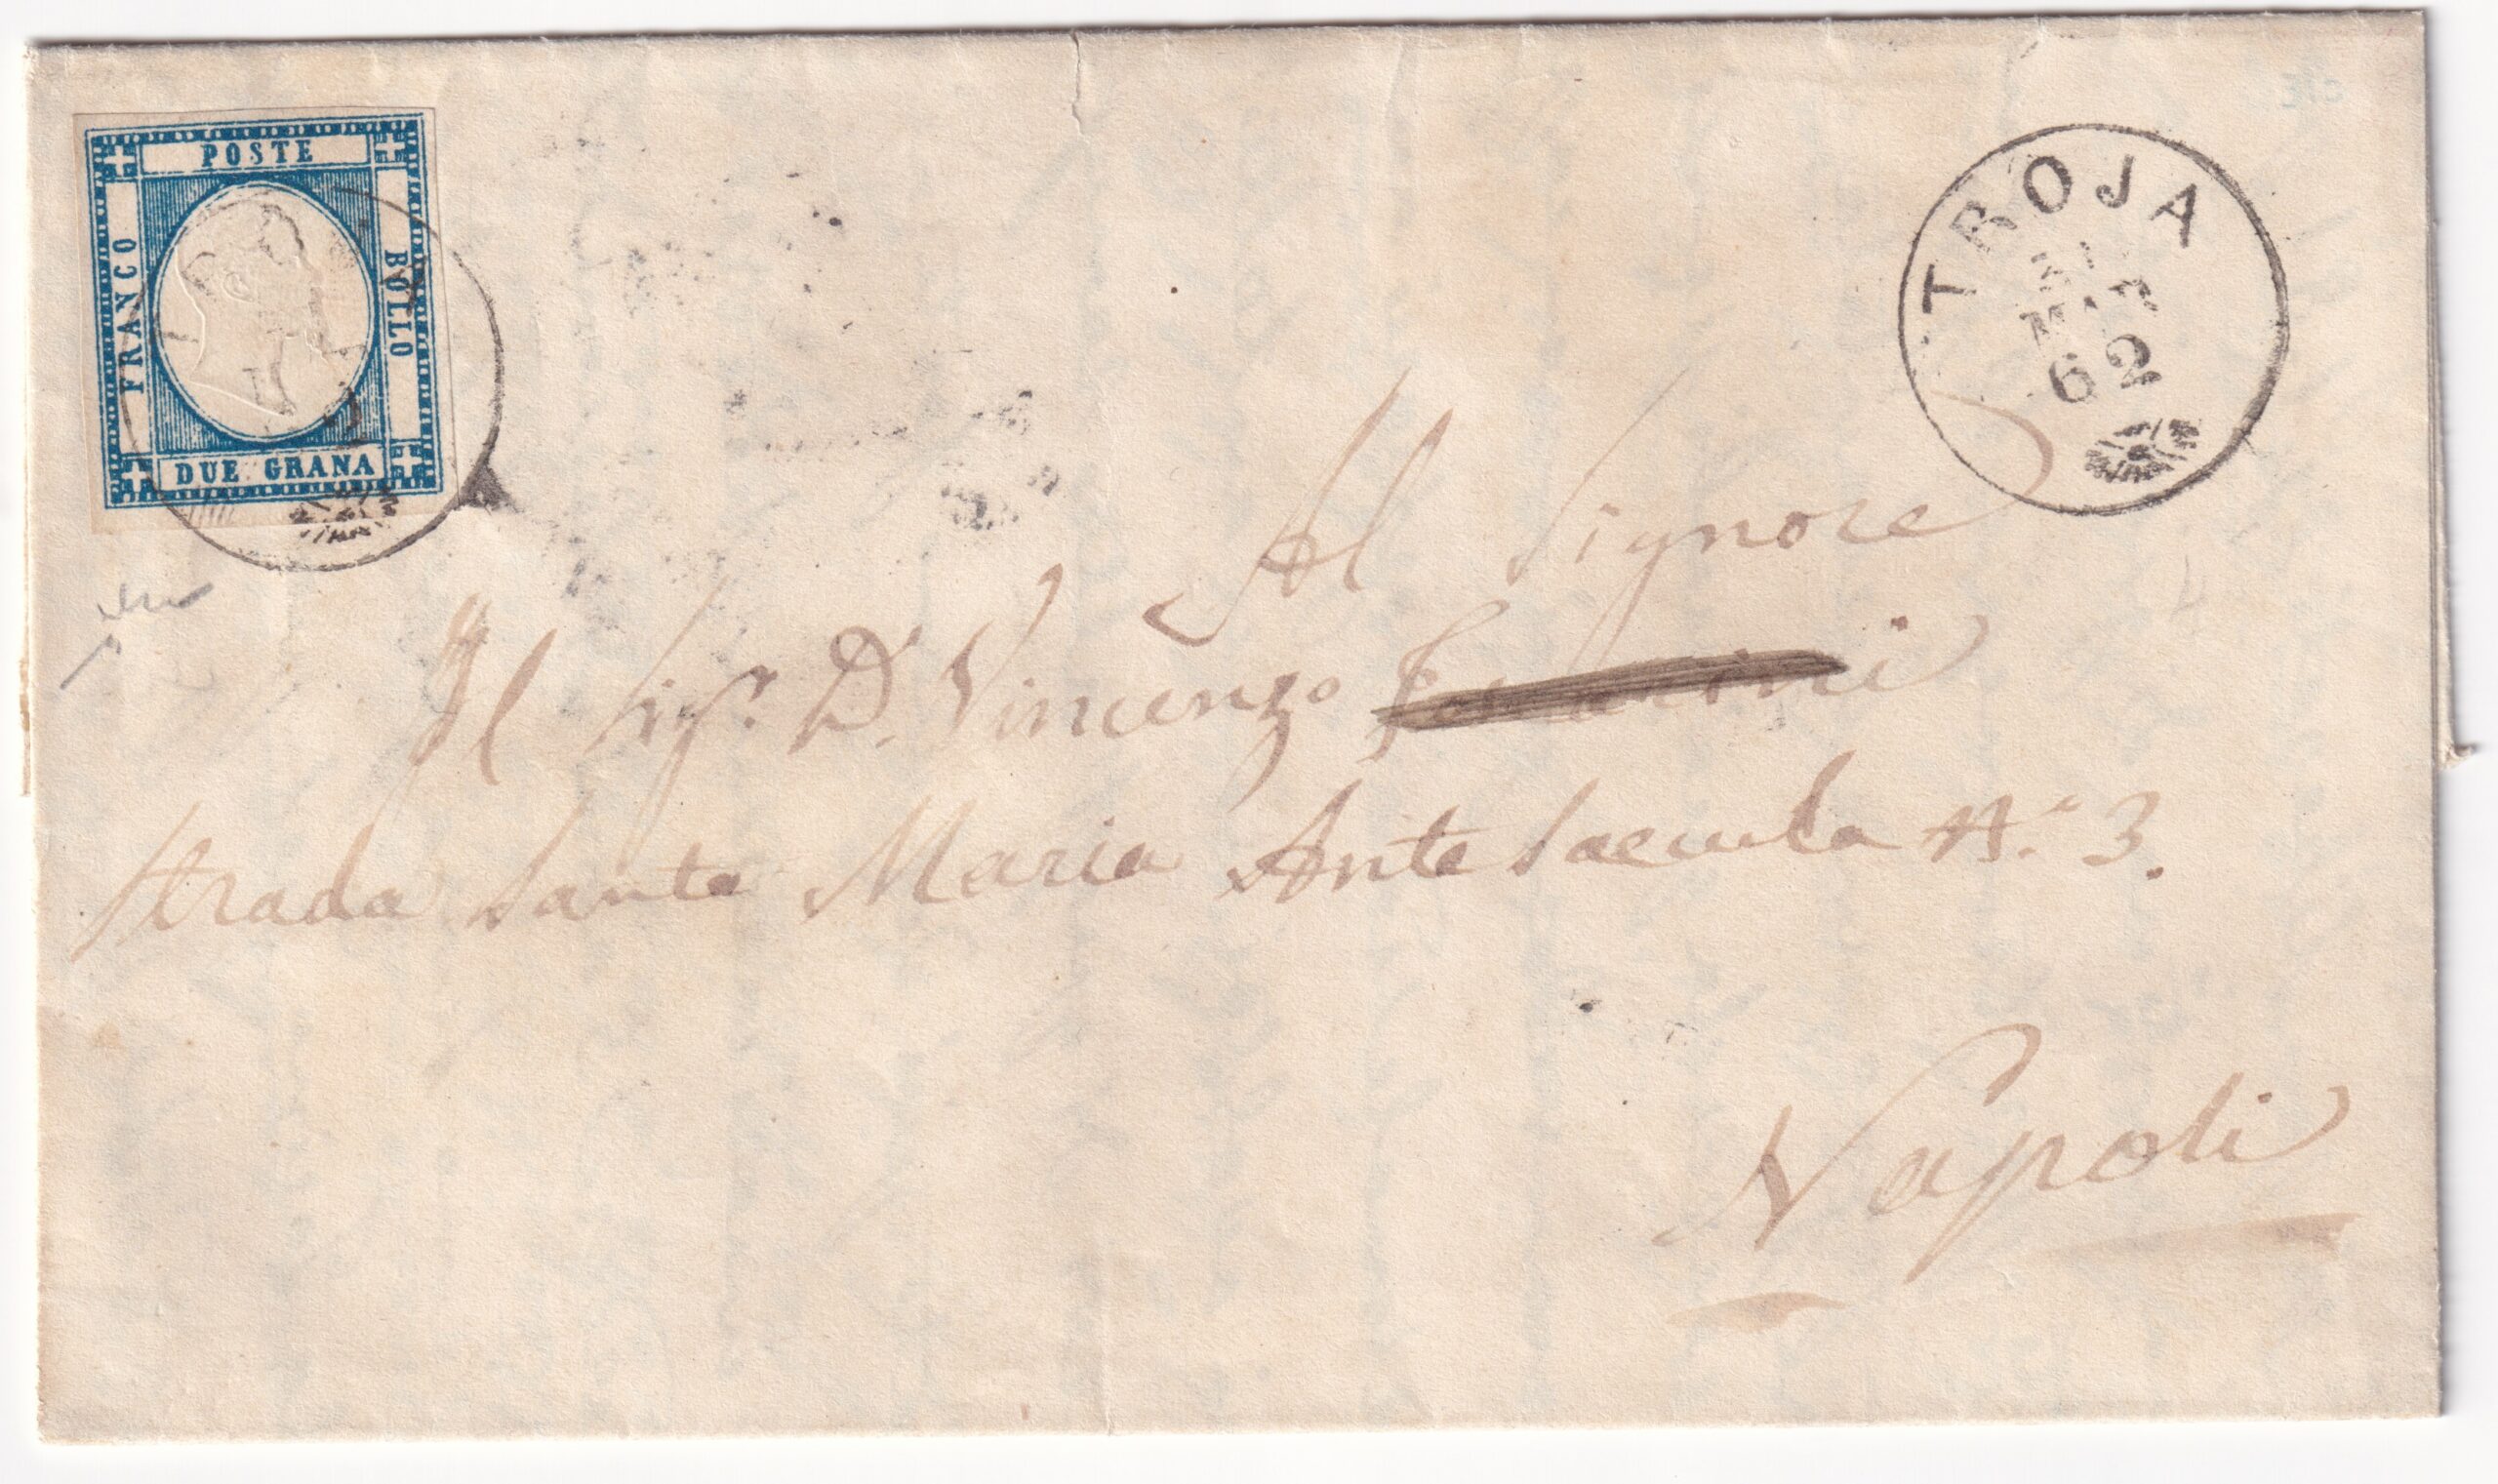 POSTE
FRANCO
BOLLO
DUE GRANA
TROJA
31
MAR
62
Al Signore
Il Sigr. D. Vincenzo
Strada Santa Maria Antesaecula No. 3.
Napoli